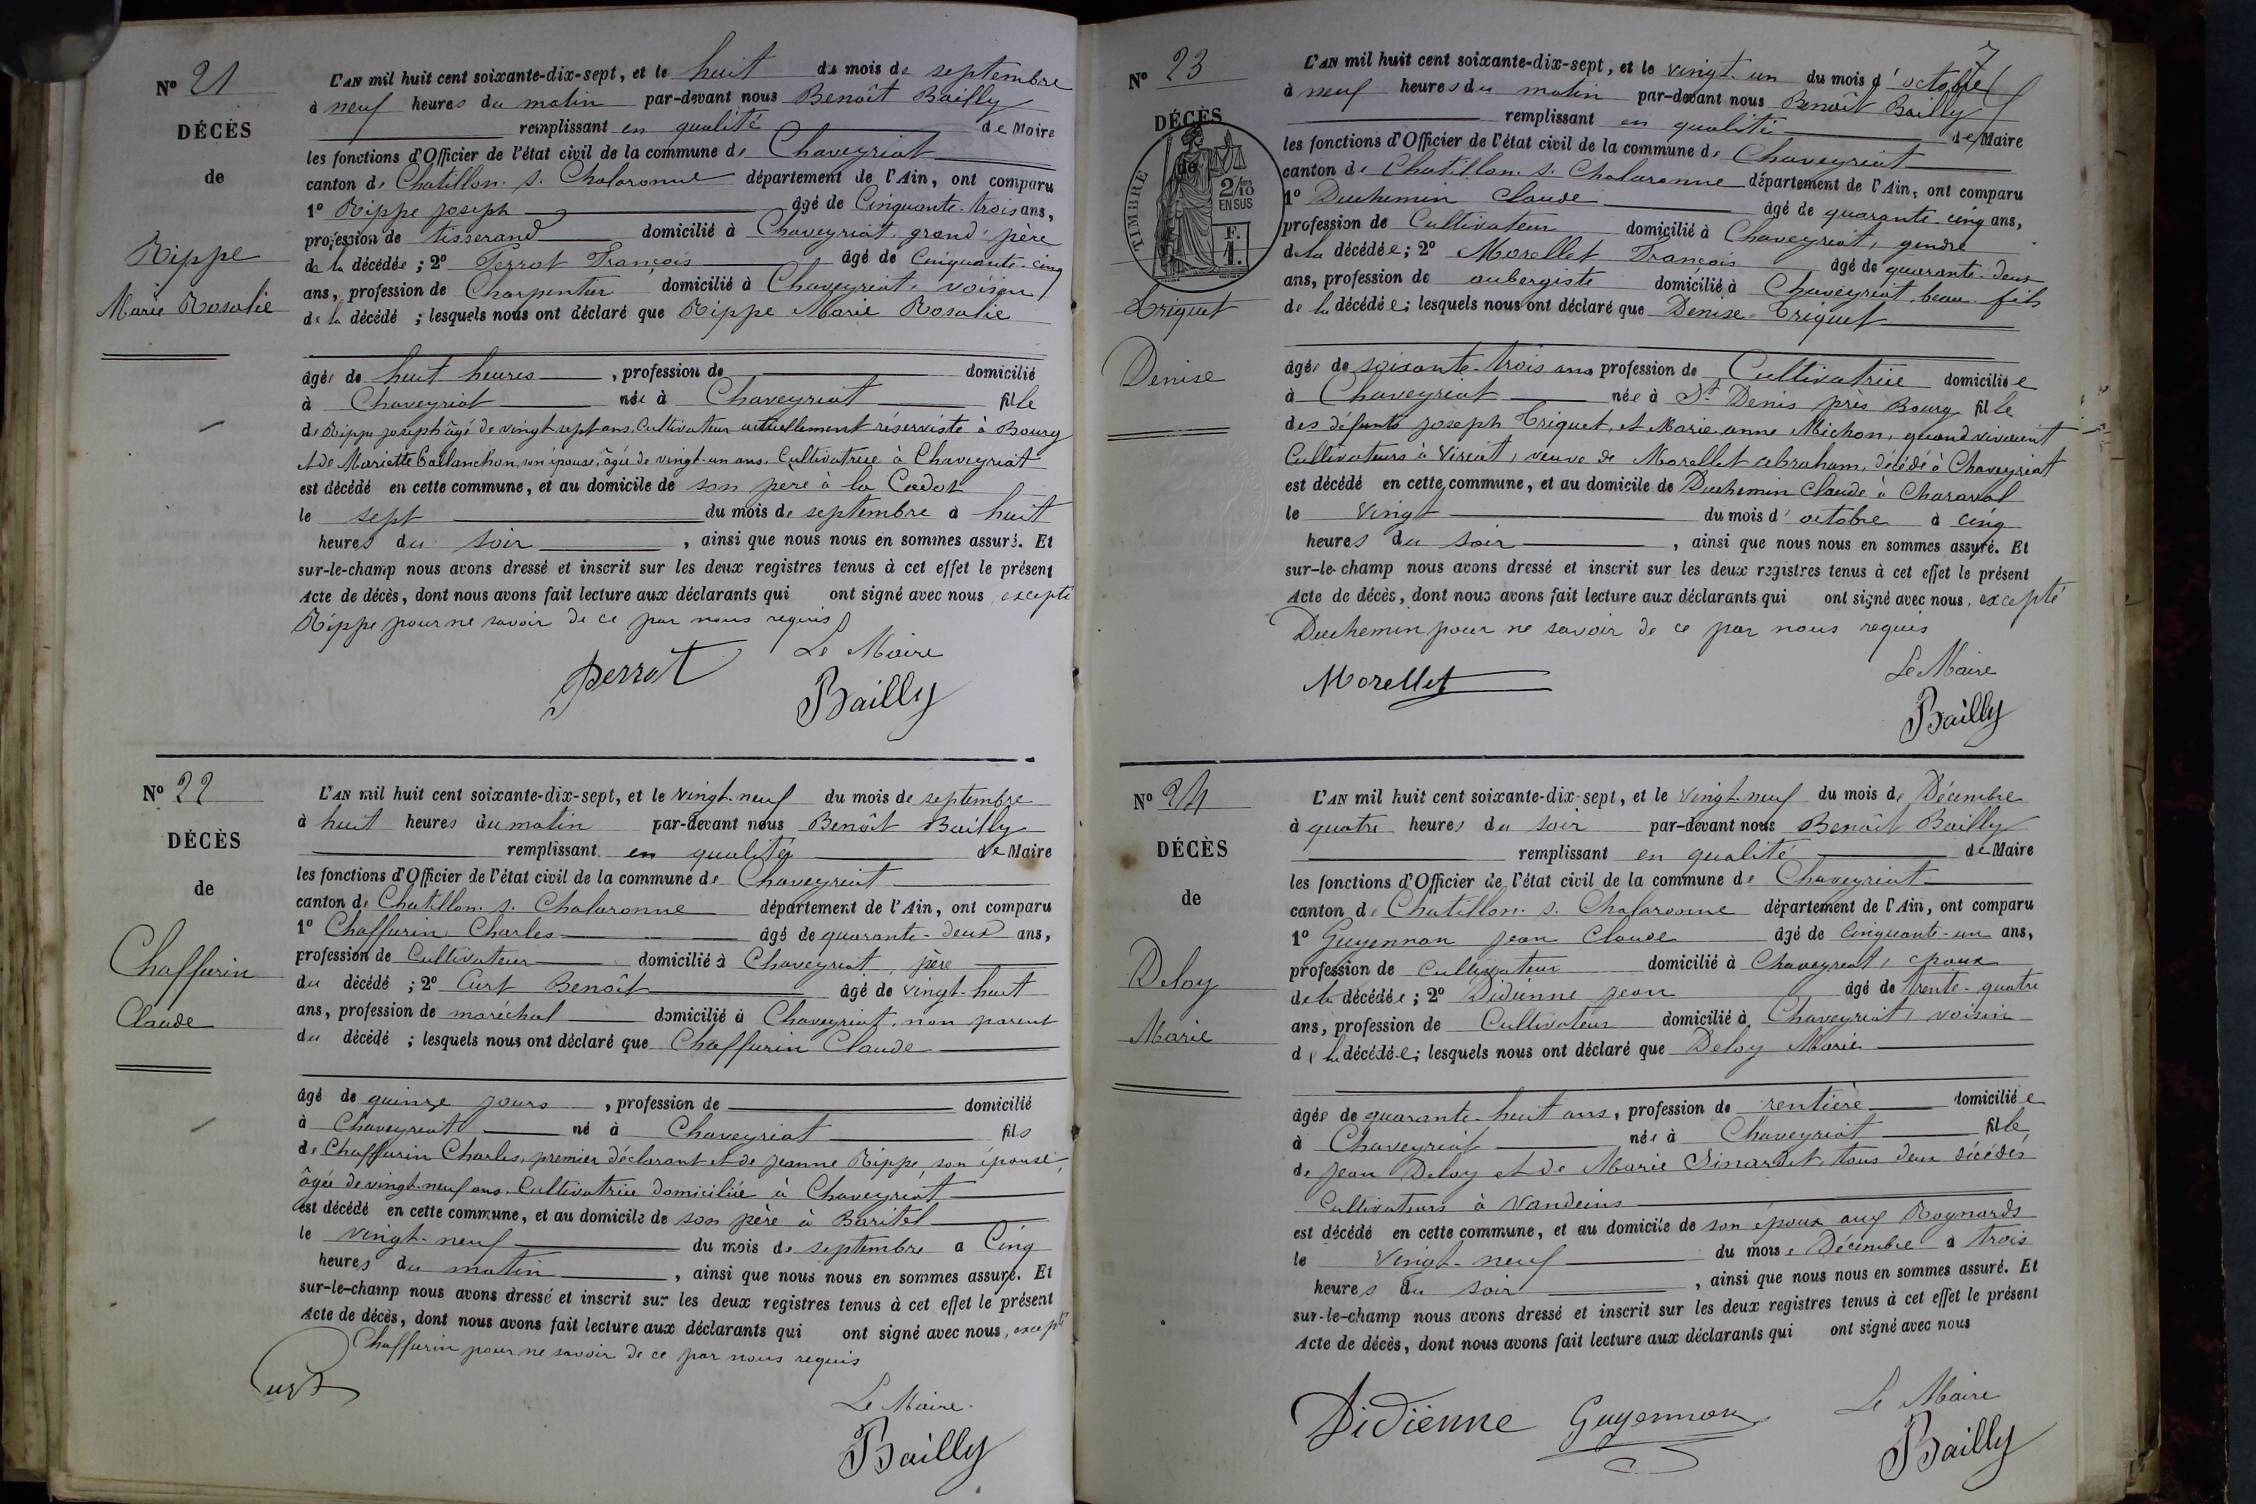 N° 21
DÉCÈS
de
Rippe
Marie Rosalie
L'AN mil huit cent soixante-dix-sept, et le huit du mois de septembre
à neuf heures du matin par-devant nous Benoît Bailly
remplissant en qualité de Maire
les fonctions d'Officier de l'état civil de la commune de Chaveyriat
canton de Chatillon s. Chalaronne département de l'Ain, ont comparu
1° Rippe Joseph âgé de Cinquante-trois ans,
profession de tisserand domicilié à Chaveyriat, grand-père
de la décédée ; 2° Perrot François âgé de Cinquante-cinq
ans, profession de Charpentier domicilié à Chaveyriat, voisin
de la décédé ; lesquels nous ont déclaré que Rippe Marie Rosalie
âgée de huit heures , profession de domicilié
à Chaveyriat née à Chaveyriat fille
de Rippe Joseph âgé de vingt sept ans, Cultivateur actuellement réserviste à Bourg
et de Mariette Callanchon, son épouse, âgée de vingt-un ans, Cultivatrice à Chaveyriat
est décédé en cette commune, et au domicile de son père à la
le sept du mois de septembre à huit
heures du soir , ainsi que nous nous en sommes assuré. Et
sur-le-champ nous avons dressé et inscrit sur les deux registres tenus à cet effet le présent
Acte de décès, dont nous avons fait lecture aux déclarants qui ont signé avec nous, excepté
Rippe pour ne savoir de ce par nous requis
Le Maire
Perrot Bailly
N° 22
DÉCÈS
de
Chaffurin
Claude
L'AN mil huit cent soixante-dix-sept, et le vingt-neuf du mois de septembre
à huit heures du matin par-devant nous Benoît Bailly
remplissant en qualité de Maire
les fonctions d'Officier de l'état civil de la commune de Chaveyriat
canton de Chatillon s. Chalaronne département de l'Ain, ont comparu
1° Chaffurin Charles âgé de quarante-deux ans,
profession de Cultivateur domicilié à Chaveyriat, père
du décédé ; 2° Curt Benoît âgé de vingt-huit
ans, profession de maréchal domicilié à Chaveyriat, non parent
du décédé ; lesquels nous ont déclaré que Chaffurin Claude
âgé de quinze jours , profession de domicilié
à Chaveyriat né à Chaveyriat fils
de Chaffurin Charles, premier déclarant et de Jeanne Rippe, son épouse,
âgée de vingt-neuf ans, Cultivatrice domiciliée à Chaveyriat
est décédé en cette commune, et au domicile de son père à Baritel
le vingt-neuf du mois de septembre a Cinq
heures du matin , ainsi que nous nous en sommes assuré. Et
sur-le-champ nous avons dressé et inscrit sur les deux registres tenus à cet effet le présent
Acte de décès, dont nous avons fait lecture aux déclarants qui ont signé avec nous, excepté
Chaffurin pour ne savoir de ce par nous requis
Curt
Le Maire.
Bailly
7
N° 23
DÉCÈS
de
TIMBRE
2/10
EN SUS
F.
1.
Triquet
Denise
L'AN mil huit cent soixante-dix-sept, et le vingt-un du mois d'octobre
à neuf heures du matin par-devant nous Benoît Bailly
remplissant en qualité de Maire
les fonctions d'Officier de l'état civil de la commune de Chaveyriat
canton de Chatillon s. Chalaronne département de l'Ain, ont comparu
1° Duchemin Claude âgé de quarante-cinq ans,
profession de Cultivateur domicilié à Chaveyriat, gendre
de la décédée ; 2° Morellet François âgé de quarante-deux
ans, profession de aubergiste domicilié à Chaveyriat, beau-fils
de la décédée ; lesquels nous ont déclaré que Denise Triquet
âgée de soixante-trois ans profession de Cultivatrice domiciliée
à Chaveyriat née à St Denis près Bourg fille
des défunts Joseph Triquet, et Marie anne Michon, quand vivaient
Cultivateurs à Viriat, veuve de Morellet abraham, décédé à Chaveyriat
est décédé en cette commune, et au domicile de Duchemin Claude à Charaval
le vingt du mois d'octobre à cinq
heures du soir , ainsi que nous nous en sommes assuré. Et
sur-le-champ nous avons dressé et inscrit sur les deux registres tenus à cet effet le présent
Acte de décès, dont nous avons fait lecture aux déclarants qui ont signé avec nous, excepté
Duchemin pour ne savoir de ce par nous requis
Le Maire
Morellet Bailly
N° 24
DÉCÈS
de
Deloy
Marie
L'AN mil huit cent soixante-dix-sept, et le vingt-neuf du mois de Décembre
à quatre heures du soir par-devant nous Benoît Bailly
remplissant en qualité de Maire
les fonctions d'Officier de l'état civil de la commune de Chaveyriat
canton de Chatillon s. Chalaronne département de l'Ain, ont comparu
1° Guyennon Jean Claude âgé de Cinquante-un ans,
profession de Cultivateur domicilié à Chaveyriat, époux
de la décédée ; 2° Didienne Jean âgé de trente-quatre
ans, profession de Cultivateur domicilié à Chaveyriat, voisin
de la décédée ; lesquels nous ont déclaré que Deloy Marie
âgée de quarante-huit ans, profession de rentière domiciliée
à Chaveyriat née à Chaveyriat fille
de Jean Deloy et de Marie Sinardet, tous deux décédés
Cultivateurs à Vandeins
est décédé en cette commune, et au domicile de son époux aux Roynards
le vingt-neuf du mois Décembre à trois
heures du soir , ainsi que nous nous en sommes assuré. Et
sur-le-champ nous avons dressé et inscrit sur les deux registres tenus à cet effet le présent
Acte de décès, dont nous avons fait lecture aux déclarants qui ont signé avec nous
Le Maire
Didienne Guyennon Bailly